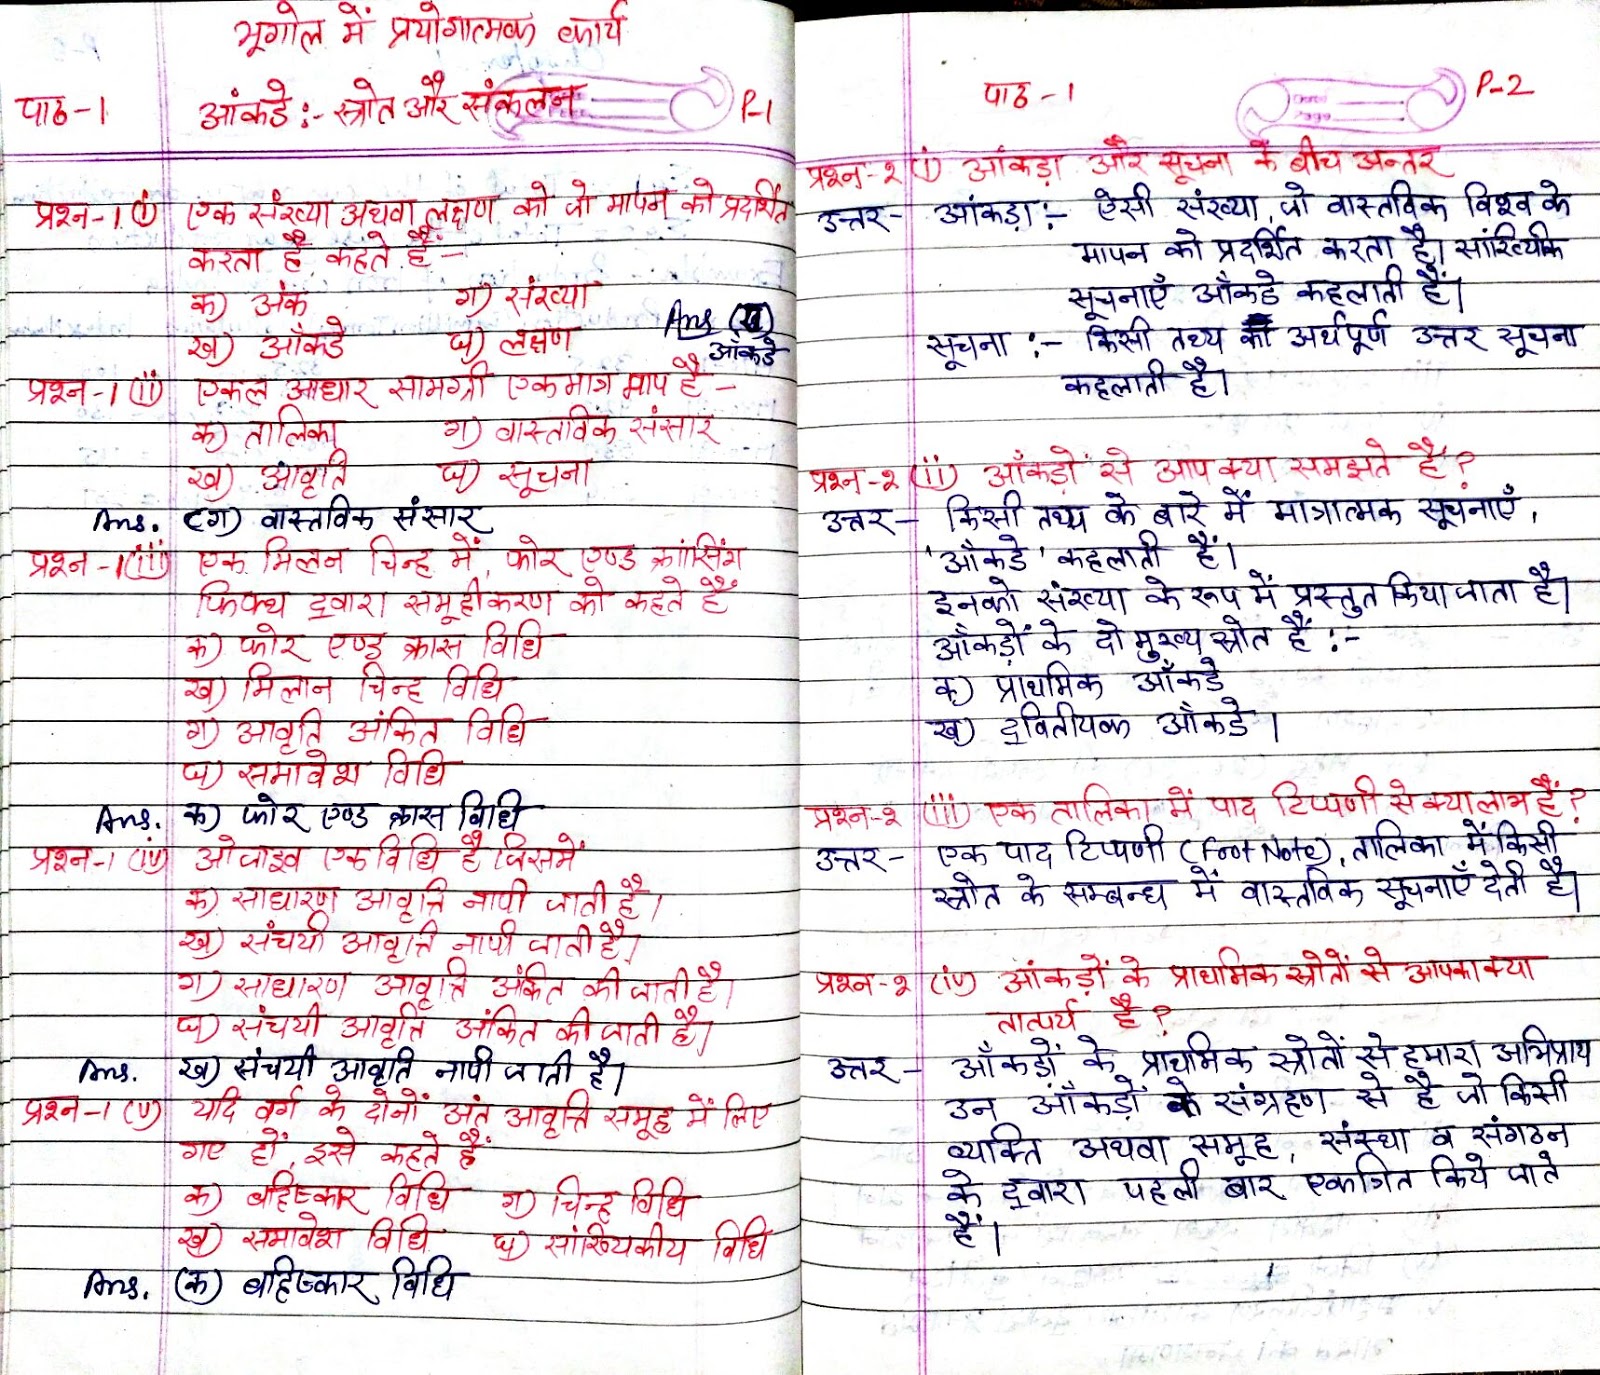 भूगोल में प्रयोगात्मक कार्य
पाठ-1 आंकडे :- स्त्रोत और संकलन P-1
प्रश्न-1(i) एक संख्या अथवा लक्षण को जो मापन को प्रदर्शित
करता है कहते हैं -
क) अंक ग) संख्या
ख) आँकडे घ) लक्षण Ans (ख)
आँकडे
प्रश्न-1(ii) एकल आधार सामग्री एकमात्र माप है -
क) तालिका ग) वास्तविक संसार
ख) आवृति घ) सूचना
Ans. (ग) वास्तविक संसार
प्रश्न-1(iii) एक मिलन चिन्ह में, फोर एण्ड क्रांसिंग
फिफ्थ द्वारा समूहीकरण को कहते हैं
क) फोर एण्ड क्रास विधि
ख) मिलान चिन्ह विधि
ग) आवृति अंकित विधि
घ) समावेश विधि
Ans. क) फोर एण्ड क्रास विधि
प्रश्न-1(iv) ओजाइव एक विधि है जिसमें
क) साधारण आवृत्ति नापी जाती है।
ख) संचयी आवृत्ति नापी जाती है।
ग) साधारण आवृत्ति अंकित की जाती है।
घ) संचयी आवृत्ति अंकित की जाती है।
Ans. ख) संचयी आवृति नापी जाती है।
प्रश्न-1(v) यदि वर्ग के दोनों अंत आवृत्ति समूह में लिए
गए हों, इसे कहते हैं
क) बहिष्कार विधि ग) चिन्ह विधि
ख) समावेश विधि घ) सांख्यिकीय विधि
Ans. (क) बहिष्कार विधि
पाठ-1 P-2
प्रश्न-२ (i) आंकड़ा और सूचना के बीच अन्तर
उत्तर- आंकड़ा :- ऐसी संख्या, जो वास्तविक विश्व के
मापन को प्रदर्शित करता है। सांख्यिकि
सूचनाएँ आँकडे कहलाती हैं।
सूचना :- किसी तथ्य की अर्थपूर्ण उत्तर सूचना
कहलाती है।
प्रश्न-२ (ii) आँकड़ों से आप क्या समझते हैं?
उत्तर- किसी तथ्य के बारे में मात्रात्मक सूचनाएँ,
'आँकडे' कहलाती हैं।
इनको संख्या के रूप में प्रस्तुत किया जाता है।
आँकड़ों के दो मुख्य स्रोत हैं :-
क) प्राथमिक आँकडे
ख) द्वितीयक आँकडे।
प्रश्न-२ (iii) एक तालिका में पाद टिप्पणी से क्या लाभ हैं?
उत्तर- एक पाद टिप्पणी (Foot Note), तालिका में किसी
स्त्रोत के सम्बन्ध में वास्तविक सूचनाएँ देती है।
प्रश्न-२ (iv) आंकड़ों के प्राथमिक स्रोतों से आपका क्या
तात्पर्य है?
उत्तर- आँकड़ों के प्राथमिक स्रोतों से हमारा अभिप्राय
उन आँकड़ों के संग्रहण से है जो किसी
व्यक्ति अथवा समूह, संस्था व संगठन
के द्वारा पहली बार एकत्रित किये जाते
हैं।